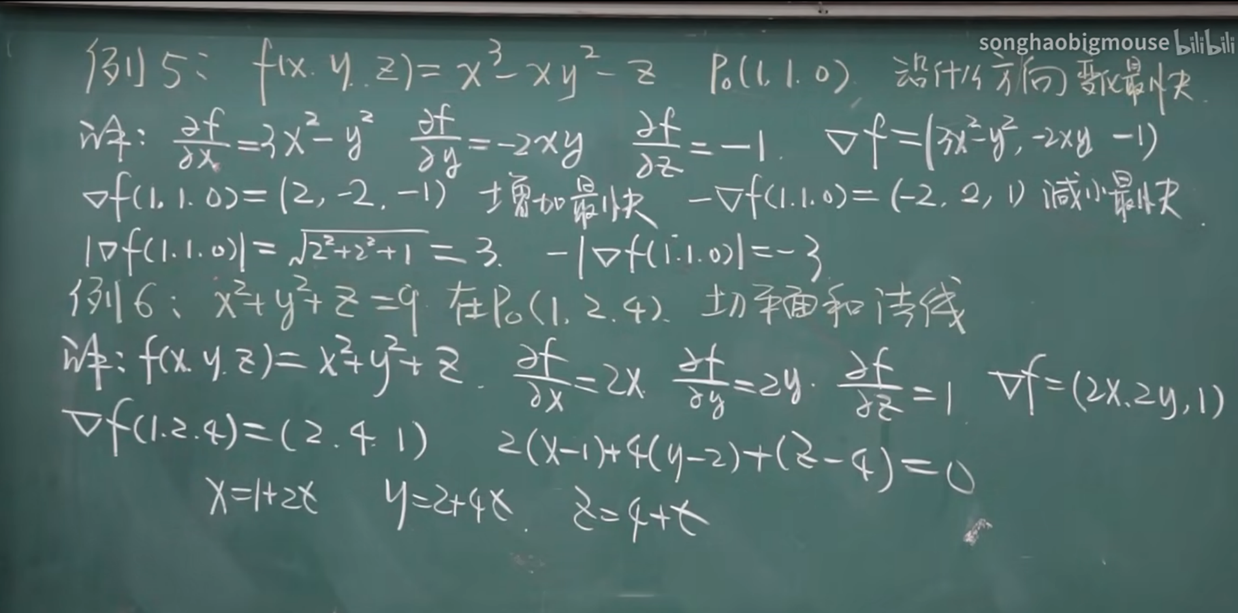 songhaobigmouse bilibili
例5: f(x.y.z)=x³-xy²-z P₀(1.1.0). 沿什么方向变化最快.
解: ∂f/∂x=3x²-y² ∂f/∂y=-2xy ∂f/∂z=-1. ∇f=(3x²-y², -2xy -1)
∇f(1.1.0)=(2,-2.-1) 增加最快 -∇f(1.1.0)=(-2.2,1) 减小最快.
|∇f(1.1.0)|=√2²+2²+1=3. -|∇f(1.1.0)|=-3
例6: x²+y²+z=9 在P₀(1.2.4). 切平面和法线
解: f(x.y.z)=x²+y²+z. ∂f/∂x=2x. ∂f/∂y=2y. ∂f/∂z=1 ∇f=(2x.2y,1)
∇f(1.2.4)=(2.4.1) 2(x-1)+4(y-2)+(z-4)=0
x=1+2t y=2+4t. z=4+t